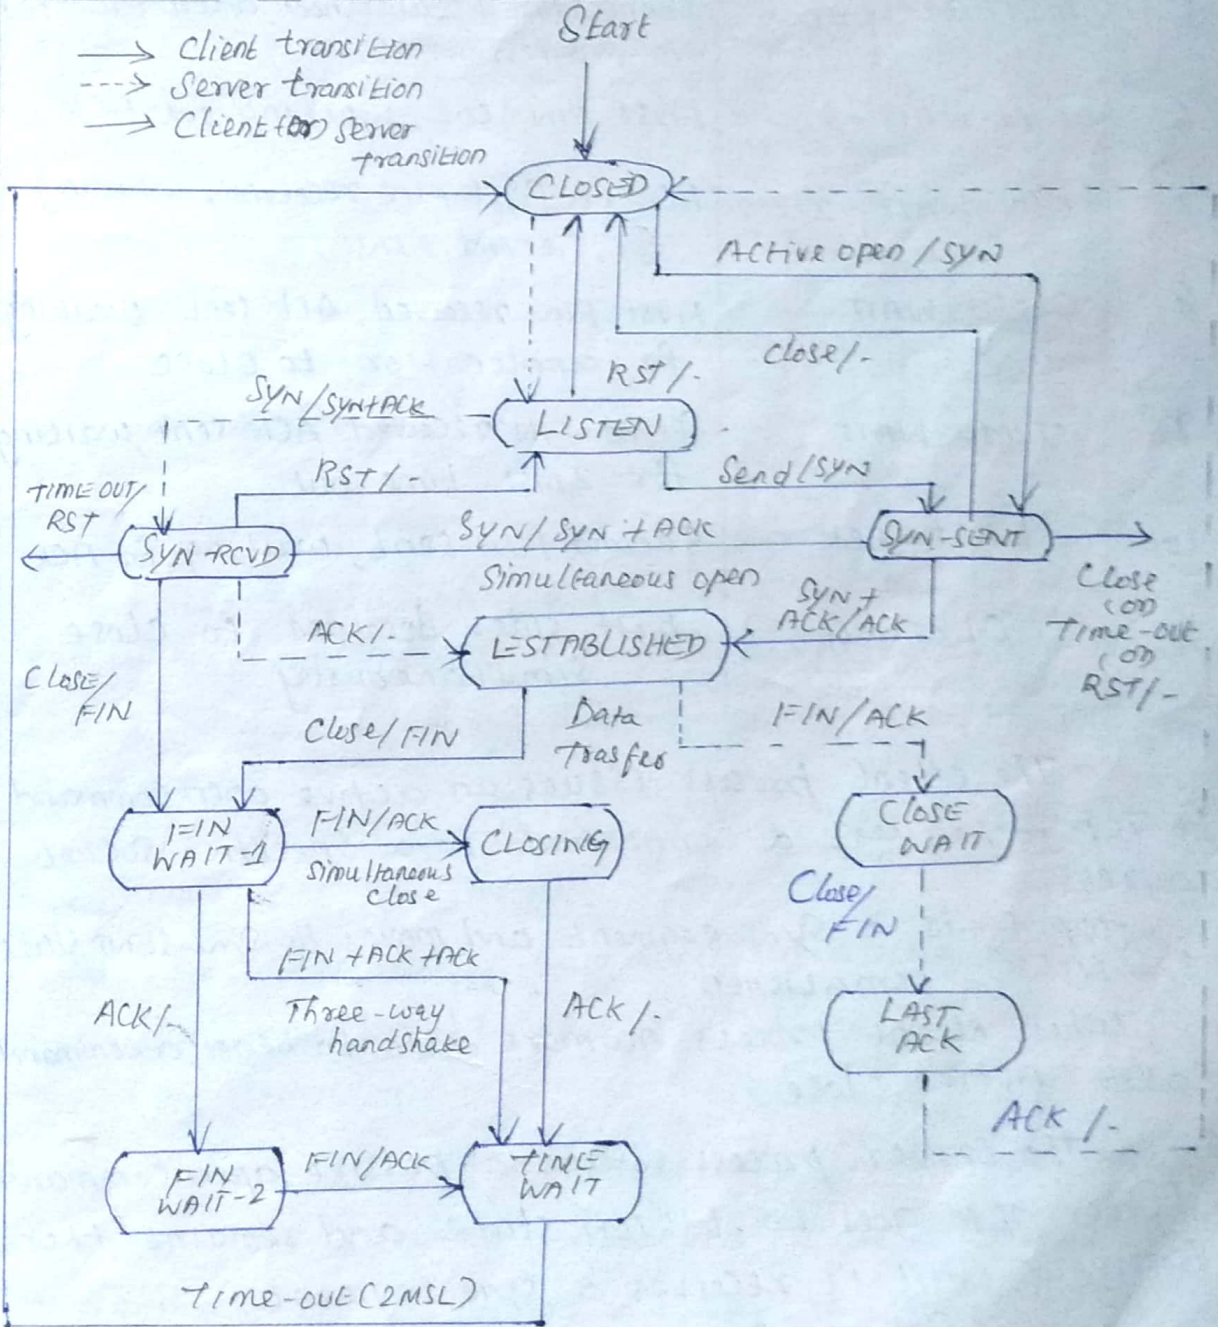 Start
Client transition
Server transition
Client (or) server
transition
CLOSED
Active open / SYN
Close/-
RST/-
SYN/SYN+ACK
LISTEN
RST/-
Send/SYN
TIME OUT/
RST
SYN-RCVD
SYN/SYN + ACK
SYN-SENT
Simultaneous open
Close
(or)
Time-out
(or)
RST/-
SYN+
ACK/ACK
ACK/-
ESTABLISHED
Close/
FIN
Close/FIN
Data
Trasfer
FIN/ACK
FIN
WAIT-1
FIN/ACK
Simultaneous
Close
CLOSING
CLOSE
WAIT
Close/
FIN
FIN +ACK +ACK
ACK/-
Three-way
handshake
ACK/-
LAST
ACK
ACK/-
FIN
WAIT-2
FIN/ACK
TIME
WAIT
Time-out(2MSL)